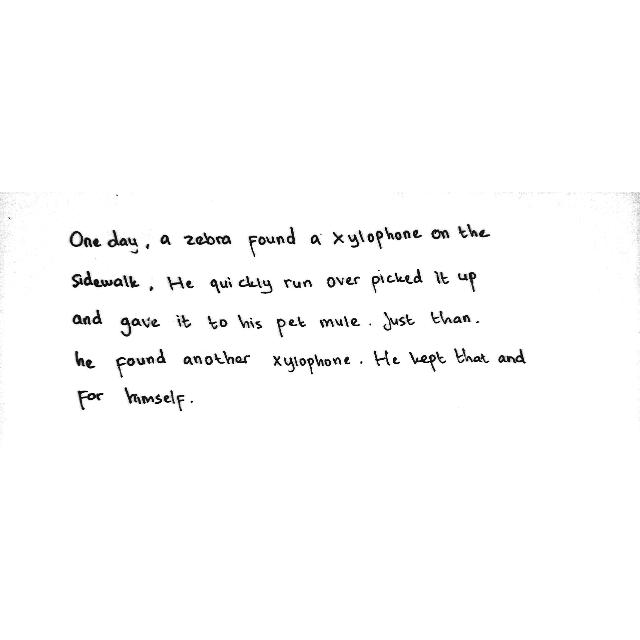 One day, a zebra found a xylophone on the
sidewalk, He quickly run over picked it up
and gave it to his pet mule. Just than.
he found another xylophone. He kept that and
For himself.